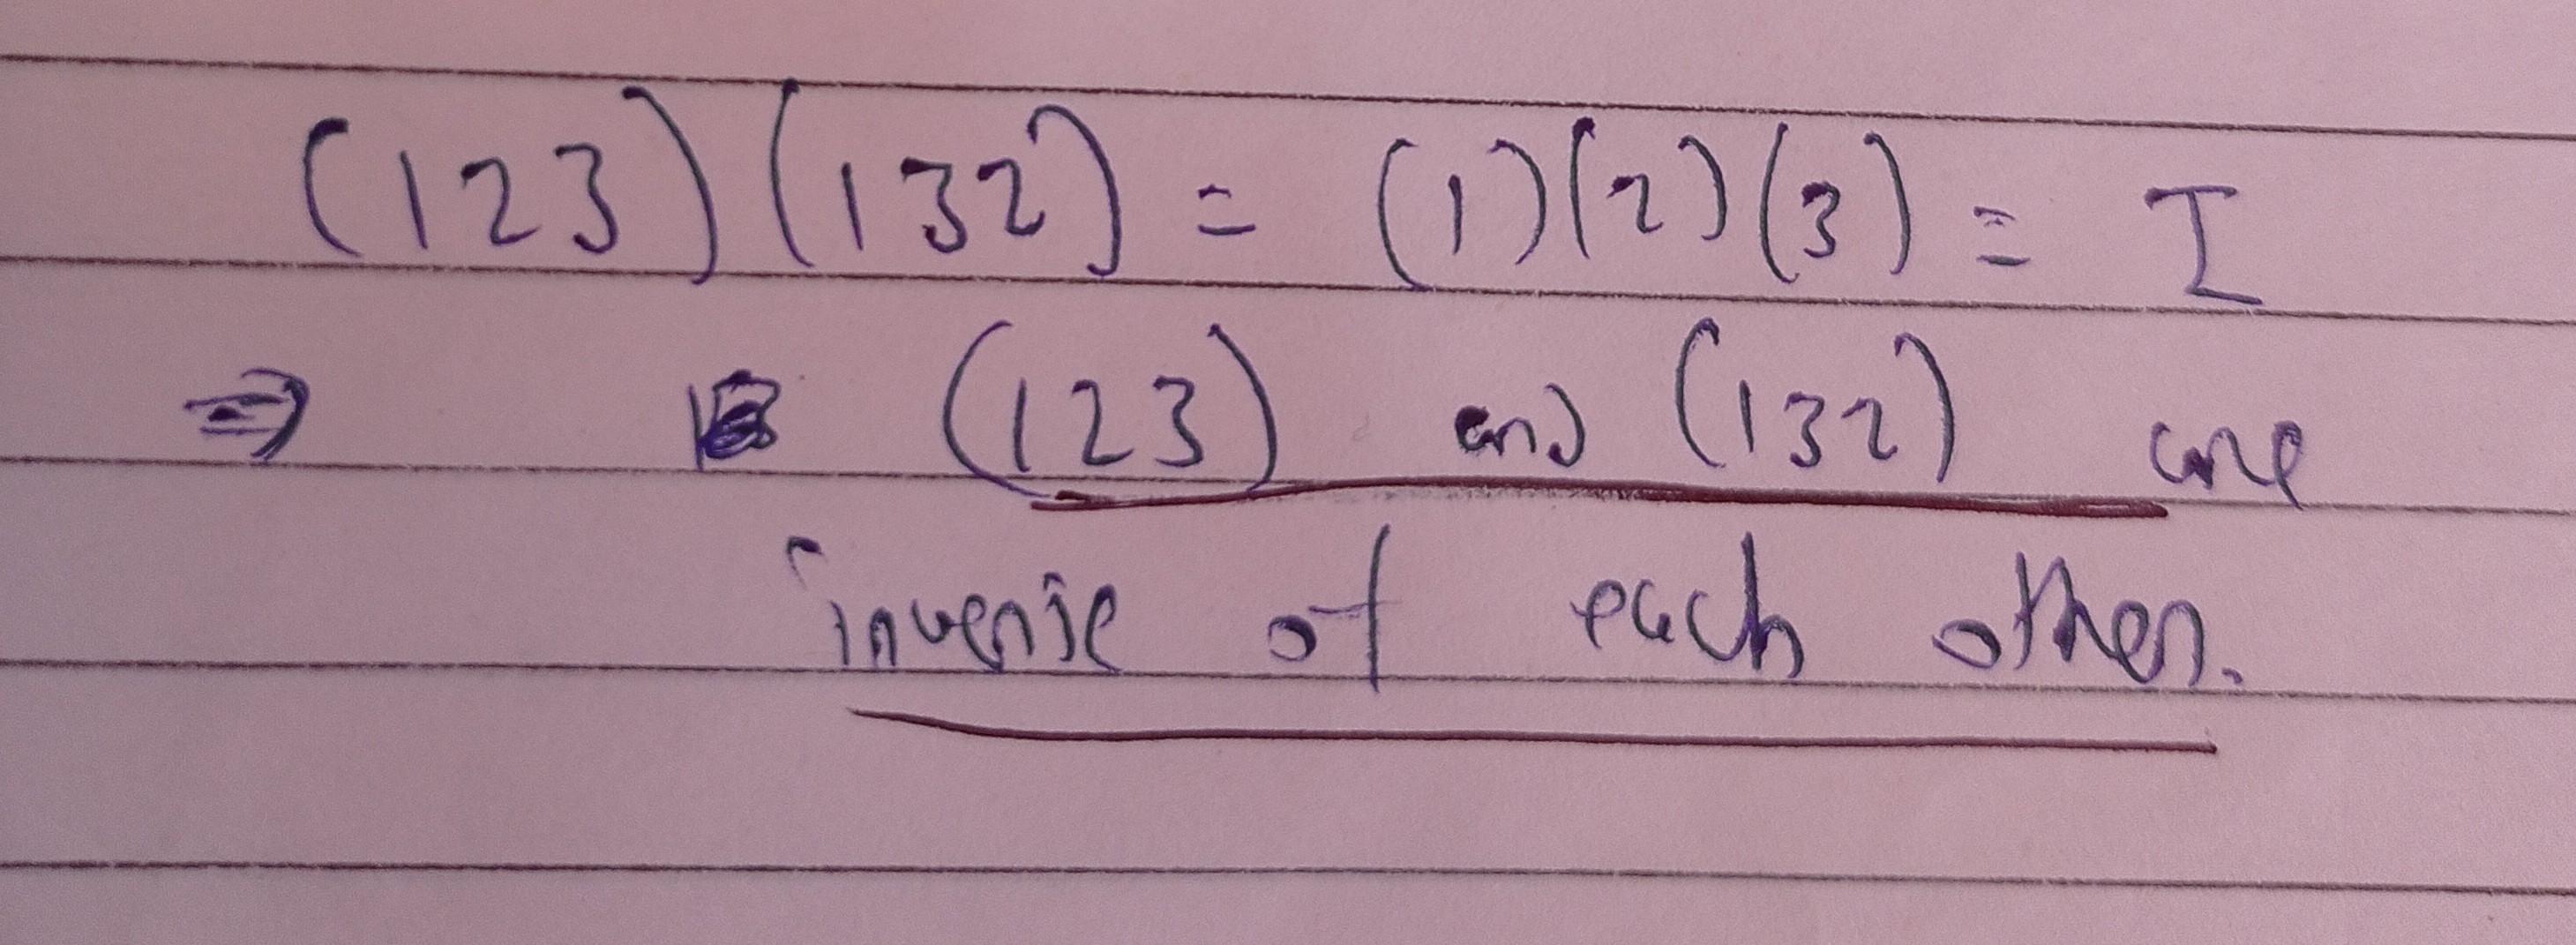 (123)(132) = (1)(2)(3) = I
⇒ (123) and (132) are
inverse of each other.